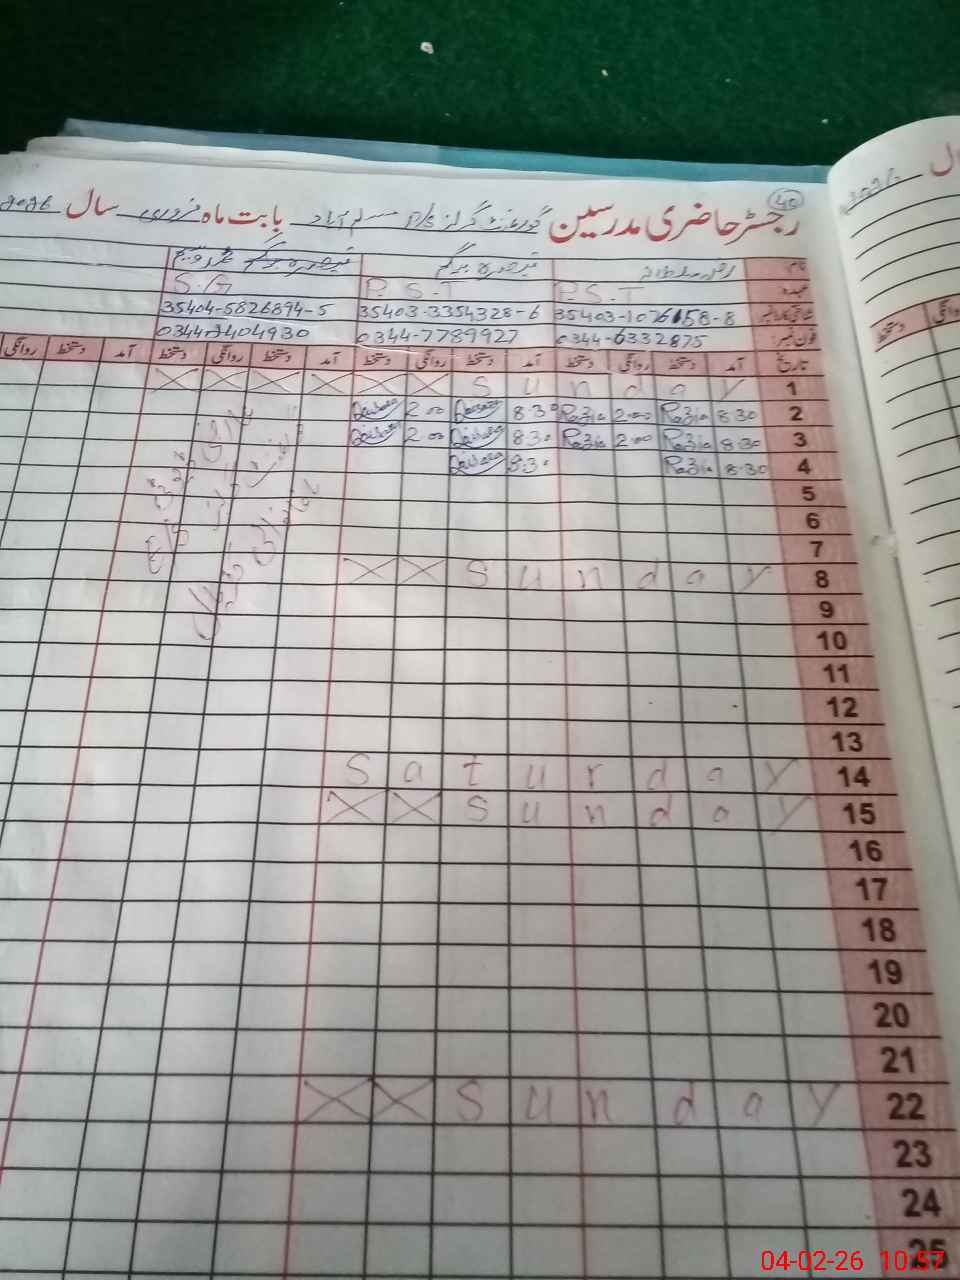 40
رجسٹر حاضری مدرسین گورنمنٹ گرلز P/S اسلم آباد بابت ماہ فروری سال 2026
نام رضیہ سلطانہ قیصرہ بیگم
عہدہ P.S.T P.S.T S.G
شناختی کارڈ نمبر 35403-1076158-8 35403-3354328-6 35404-5826894-5
فون نمبر: 0344-6332875 0344-7789927 03442404930
تاریخ آمد دستخط روانگی دستخط آمد دستخط روانگی دستخط آمد دستخط روانگی دستخط آمد دستخط روانگی
1 Sunday
2 8.30 Razia 2.00 Razia 8.30 Qaisara 2.00 Qaisara
3 8.30 Razia 2.00 Razia 8.30 Qaisara 2.00 Qaisara
4 8.30 Razia 8.30 Qaisara
5
6
7
8 Sunday
9
10
11
12
13
14 Saturday
15 Sunday
16
17
18
19
20
21
22 Sunday
23
24
25
دستخط روانگی
04-02-26 10:57